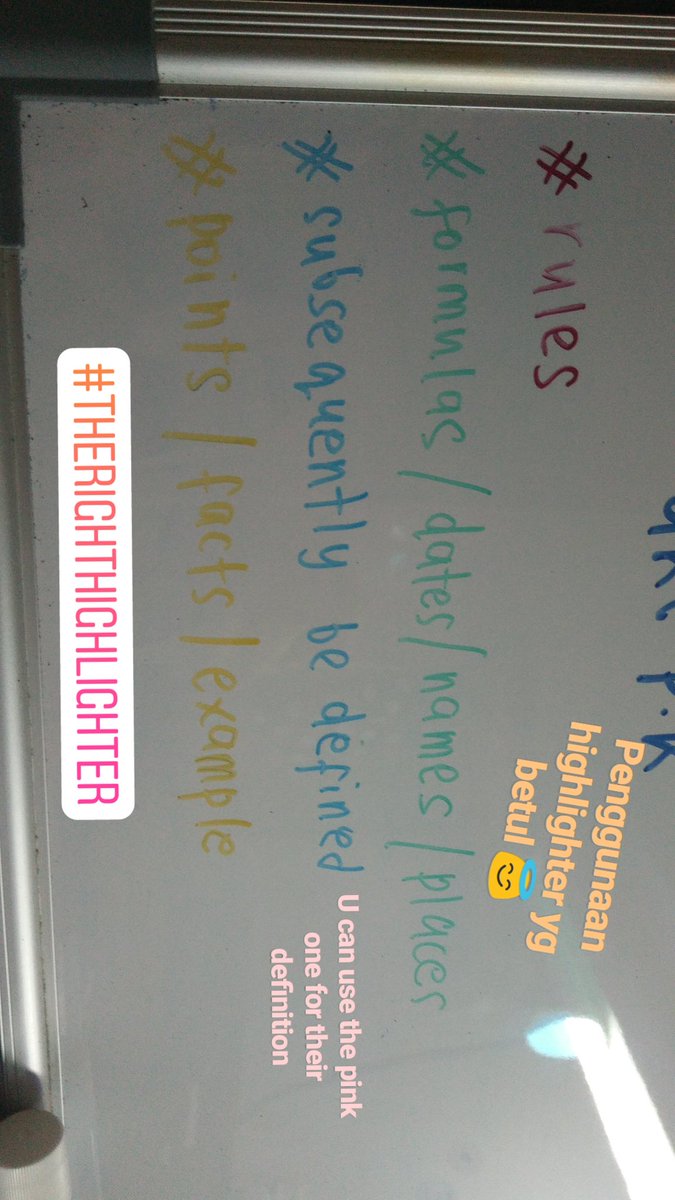 Penggunaan
highlighter yg
betul 😇
# rules
# formulas / dates / names / places
# subsequently be defined
U can use the pink
one for their
definition
# points / facts / example
#THERIGHTHIGHLIGHTER